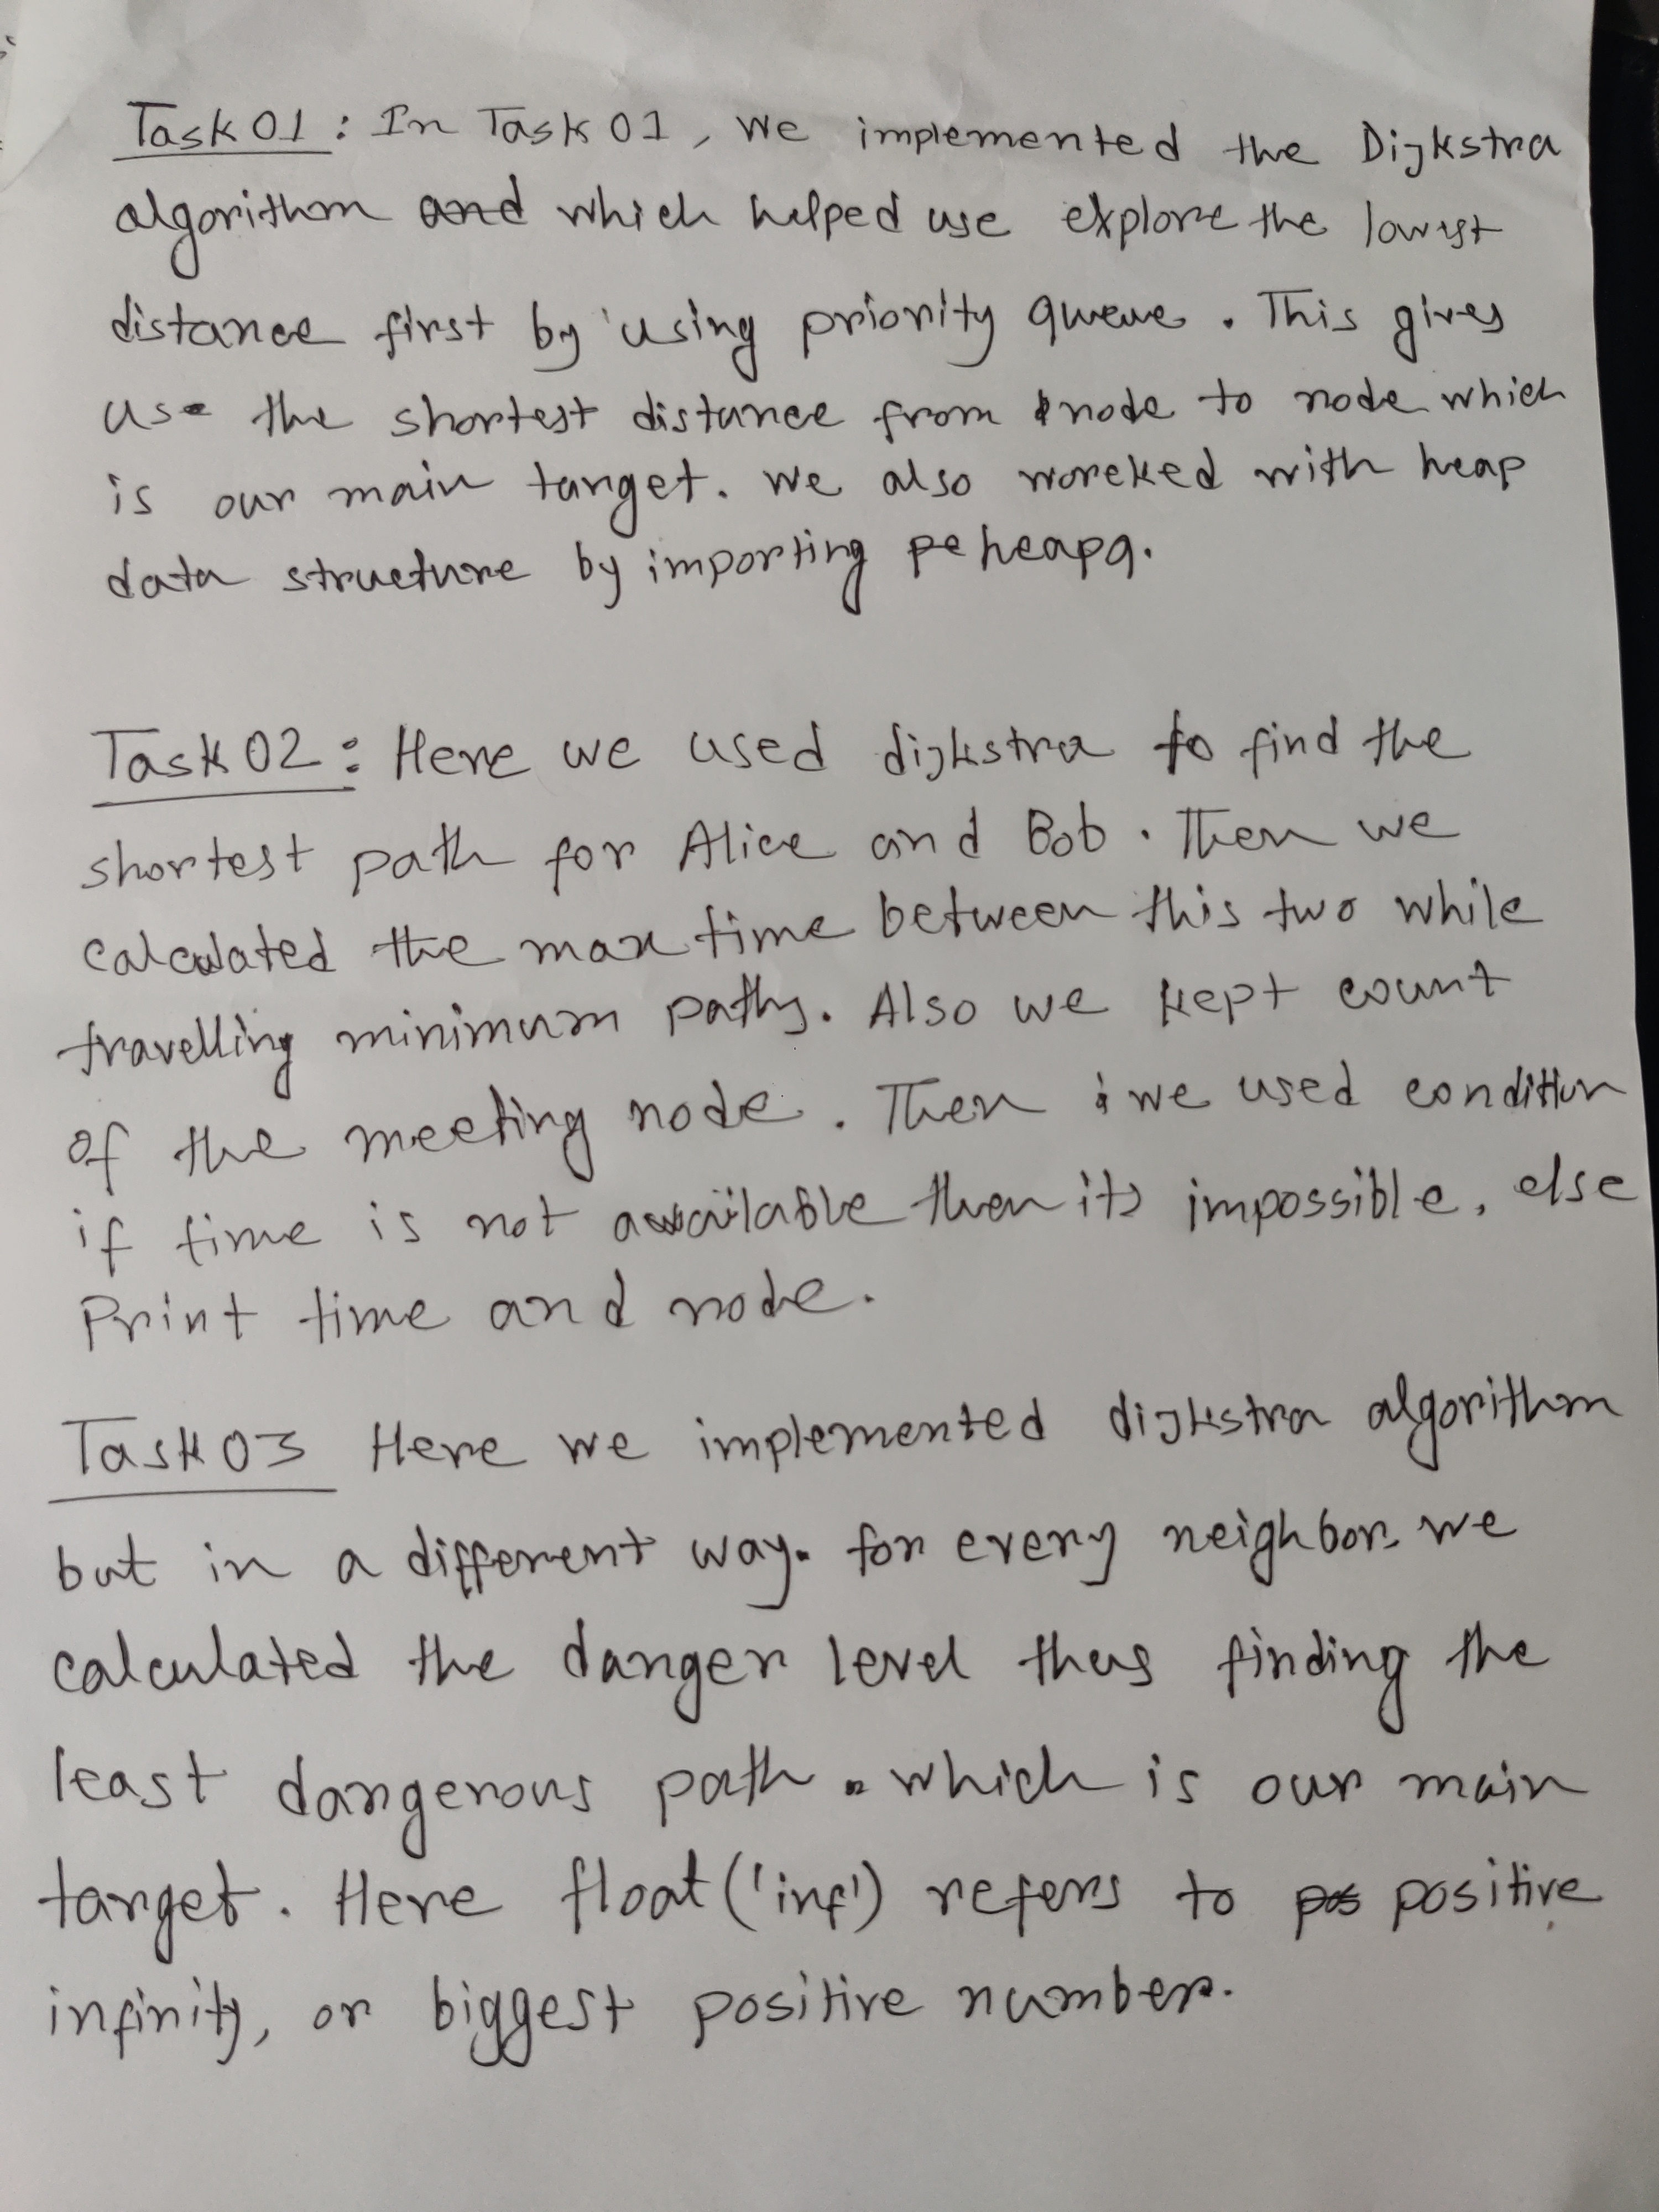 Task 01 : In Task 01, we implemented the Dijkstra
algorithm and which helped use explore the lowest
distance first by using priority queue. This gives
use the shortest distance from node to node which
is our main target. we also woreked with heap
data structure by importing heapq.
Task 02 : Here we used dijkstra to find the
shortest path for Alice and Bob. Then we
calculated the max time between this two while
travelling minimum paths. Also we kept count
of the meeting node. Then we used condition
if time is not available then its impossible, else
Print time and node.
Task 03 Here we implemented dijkstra algorithm
but in a different way. for every neighbor we
calculated the danger level thus finding the
least dangerous path. which is our main
target. Here float('inf') refers to pos positive
infinity, or biggest positive number.